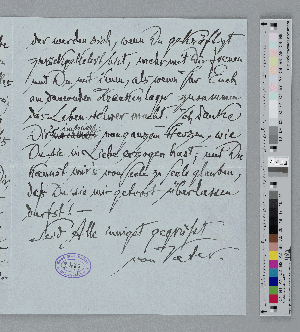 der werden sich, wenn Du gekräftigt
zurückgekehrt bist, mehr mit Dir freuen
und Du mit ihnen, als wenn Ihr Euch
am dauernden Krankenlager zusammen
das Leben schwer macht. Ich danke
Dir von ganzem Herzen, wie
Du sie in Liebe erzogen hast, und Du
kannst mir's von Seele zu Seele glauben,
daß Du sie mir getrost überlassen
darfst! —
Seid Alle innigst gegrüßt
von Vater